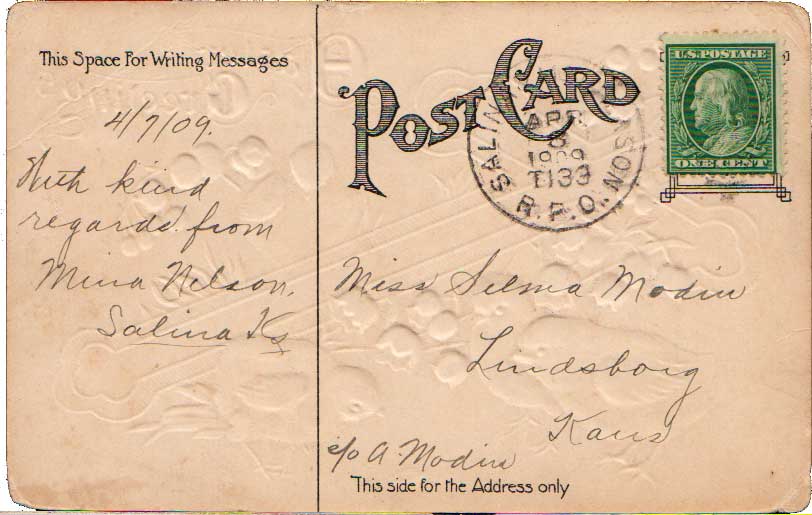 This Space For Writing Messages
4/7/09.
With kind
regards from
Mina Nelson,
Salina Ks
POST CARD
SALINA
SON
APR
8
1909
T133
R.P.O.
U.S. POSTAGE
ONE CENT
Miss Selma Modin
Lindsborg
Kans
c/o A. Modin
This side for the Address only